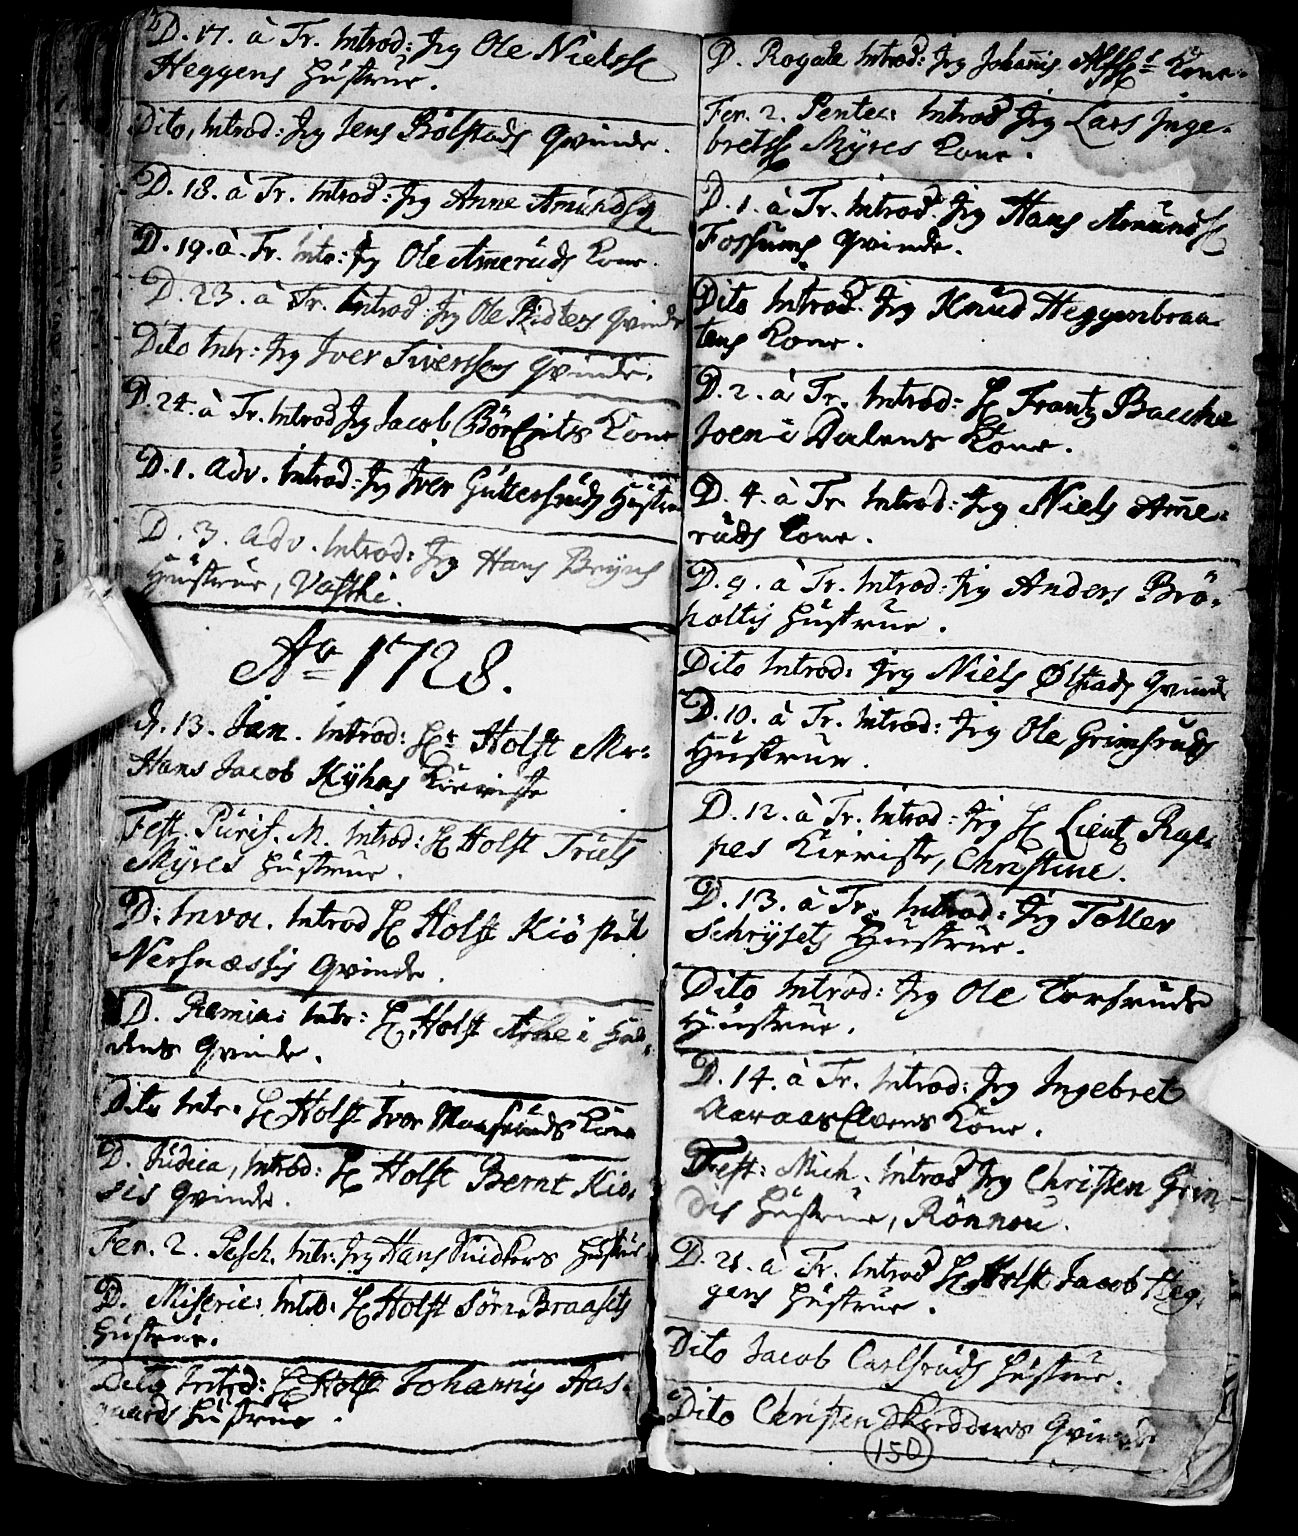 D. 17. à Tr. Introd: Jeg Ole Nielss.
Heggens Hustrue.
Dito, Introd: Jeg Jens Bölstads Qvinde.
D. 18. à Tr. Introd: Jeg Anne Amundsd.
D. 19. à. Tr. Intr: Jeg Ole Amerüds Kone.
D. 23. à Tr. Introd: Jeg Ole Qvinde
Dito Intr: Jeg Iver Qvinde.
D. 24. à Tr. Introd Jeg Jacob Kone
D. 1. Adv. Introd: Jeg Iver Güttersrüds Hustrue
D. 3. Adv. Introd: Jeg Hans Bryns
Hüstrue, Vasthi.
Ao 1728.
d. 13. Jan. Introd: Hr Holst Mr:
Hans Jacob Kÿhns Kieriste
Fest. Purif. M. Introd: H Holst Truels
Mÿres Hüstrue.
D: Invoc. Introd H Holst Kiöstel
Nersnæssis Qvinde.
D. Remin: Intr: H Holst Arne i Hol-
dens Qvinde.
Dito Intr: H Holst Iver Kone
D. Judica, Introd: H Holst Bernt Kio-
sis Qvinde.
Fer. 2. Pasch. Intr: Jeg Hans Hustrue
D. Miseric: Introd: H Holst Sörn Braatets
Hustrue.
Dito Introd: H Holst Johannis Aas-
gaards Hustrue.
D. Rogate Introd: Jeg Johannis Kone.
Fer. 2. Pentec: Introd Jeg Lars Inge-
bretss. Mÿres Kone.
D. 1. à Tr. Introd. Jeg Hans Amunds.
Fossums Qvinde.
Dito Introd. Jeg Knud Heggenbraa-
tens Kone.
D. 2. à Tr. Introd: H Frantz Bacche
Joen i Dalens Kone.
D. 4. à Tr. Introd: Jeg Niels Ame-
rüds Kone.
D. 9. à Tr. Introd: Jeg Anders Brö-
holtis Hustrue.
Dito Introd: Jeg Niels Ölstads Qvinde
D. 10. à Tr. Introd: Jeg Ole Grimsruds
Hustrue.
D. 12. à Tr. Introd: Jeg H Lieut Rap-
pes Kieriste, Christine.
D. 13. à Tr. Introd: Jeg Toller
Schrÿsets Hustrue.
Dito Introd: Jeg Ole Torsruds
Hüstrue.
D. 14. à Tr. Introd: Jeg Ingebret
Aaraas Elvens Kone.
Fest: Mich. Introd Jeg Christen Grin-
dis Hüstrue, Rönnou.
D. 21. à Tr. Introd H Holst Jacob Heg-
gens Hustrue.
Dito Jacob Carlsrüds Hüstrue.
Dito Christen Skredders Qvinde
150